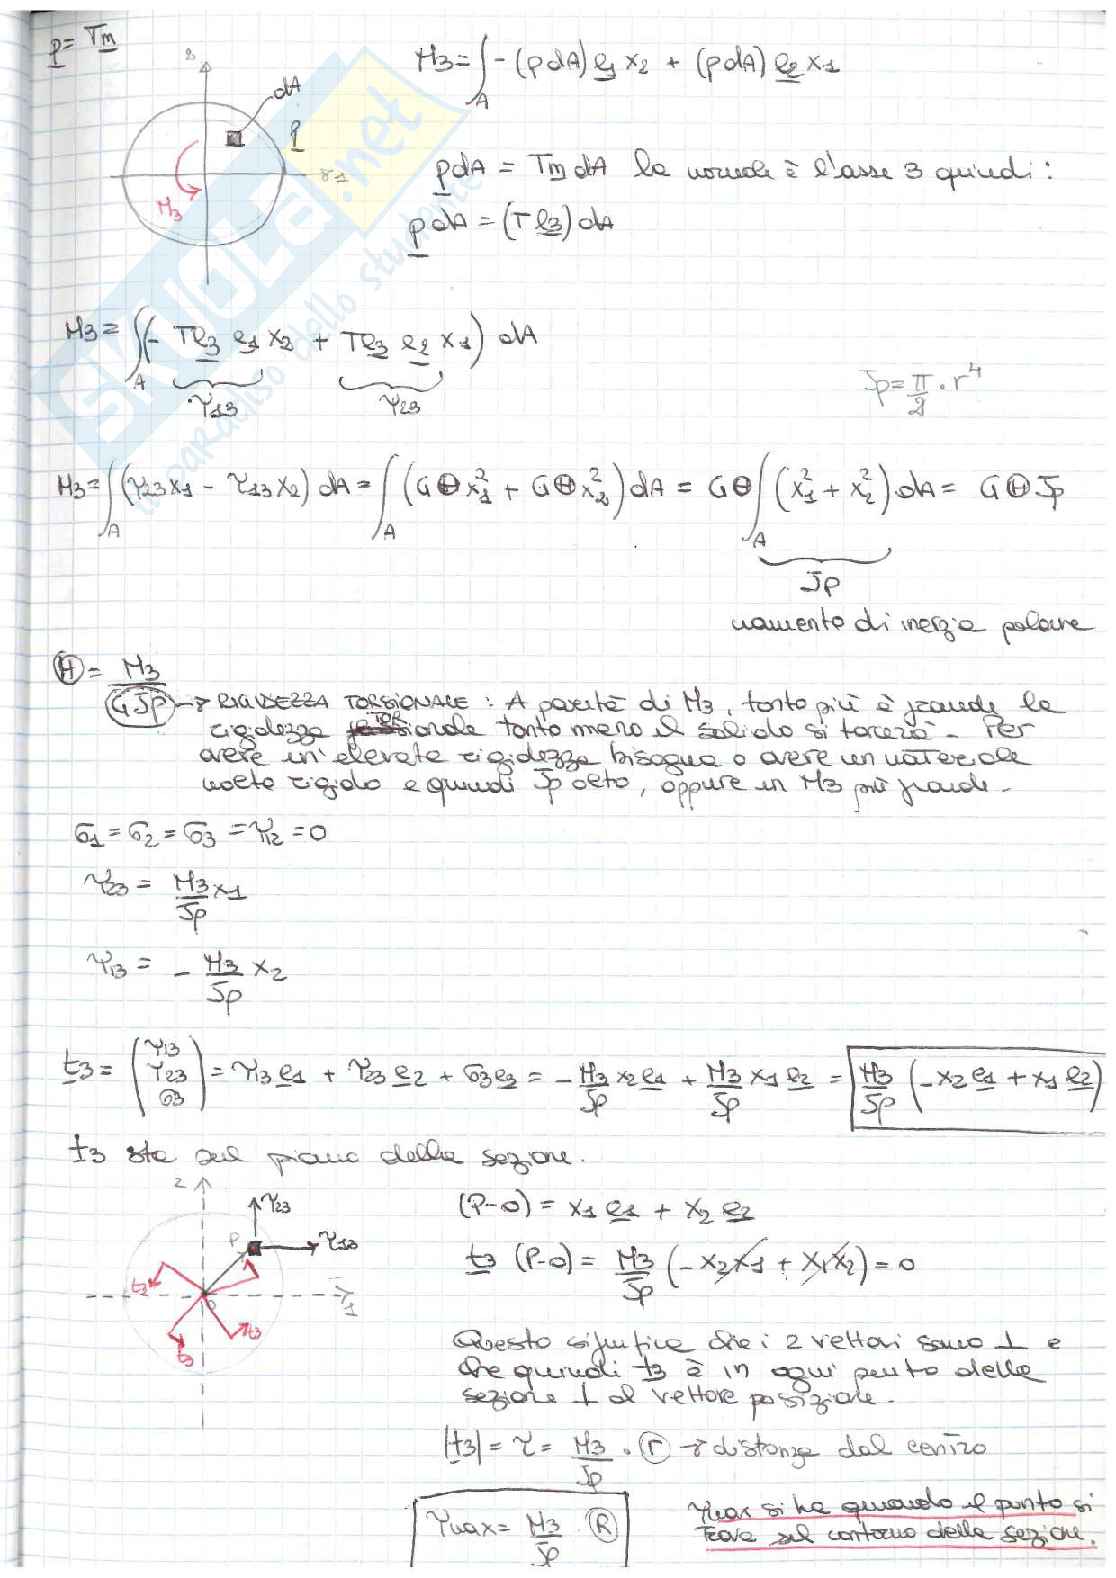 p = Tm
2
dA
p
1
M3
M3 = ∫A -(p dA) e1 x2 + (p dA) e2 x1
p dA = Tm dA la normale è l'asse 3 quindi:
p dA = (T e3) dA
M3 = ∫A (- T e3 e1 x2 + T e3 e2 x1) dA
τ13 τ23
Jp = π/2 · r^4
M3 = ∫A (τ23 x1 - τ13 x2) dA = ∫A (GΘ x1^2 + GΘ x2^2) dA = GΘ ∫A (x1^2 + x2^2) dA = GΘ Jp
Jp
momento di inerzia polare
Θ = M3 / GJp → RIGIDEZZA TORSIONALE : A parità di M3, tanto più è grande la
rigidezza torsionale tanto meno il solido si torcerà. Per
avere un'elevata rigidezza bisogna o avere un materiale
molto rigido e quindi Jp alto, oppure un M3 più grande.
σ1 = σ2 = σ3 = τ12 = 0
τ23 = M3/Jp x1
τ13 = - M3/Jp x2
t3 = (τ13 τ23 σ3) = τ13 e1 + τ23 e2 + σ3 e3 = - M3/Jp x2 e1 + M3/Jp x1 e2 = M3/Jp (-x2 e1 + x1 e2)
t3 sta sul piano della sezione.
2
τ23
P
τ13
t3
O
1
t3
t3
(P-O) = x1 e1 + x2 e2
t3 (P-O) = M3/Jp (-x2 x1 + x1 x2) = 0
Questo significa che i 2 vettori sono ⊥ e
che quindi t3 è in ogni punto della
sezione ⊥ al vettore posizione.
|t3| = τ = M3/Jp · r → distanza dal centro
τmax = M3/Jp R
τmax si ha quando il punto si
trova sul contorno della sezione.
SKUOLA.net
il paradiso dello studente